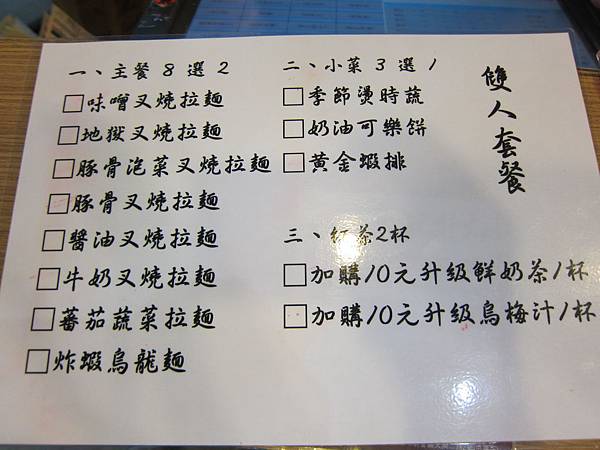 雙人套餐
一、主餐8選2
□味噌叉燒拉麵
□地獄叉燒拉麵
□豚骨泡菜叉燒拉麵
□豚骨叉燒拉麵
□醬油叉燒拉麵
□牛奶叉燒拉麵
□蕃茄蔬菜拉麵
□炸蝦烏龍麵
二、小菜3選1
□季節燙時蔬
□奶油可樂餅
□黃金蝦排
三、紅茶2杯
□加購10元升級鮮奶茶1杯
□加購10元升級烏梅汁1杯